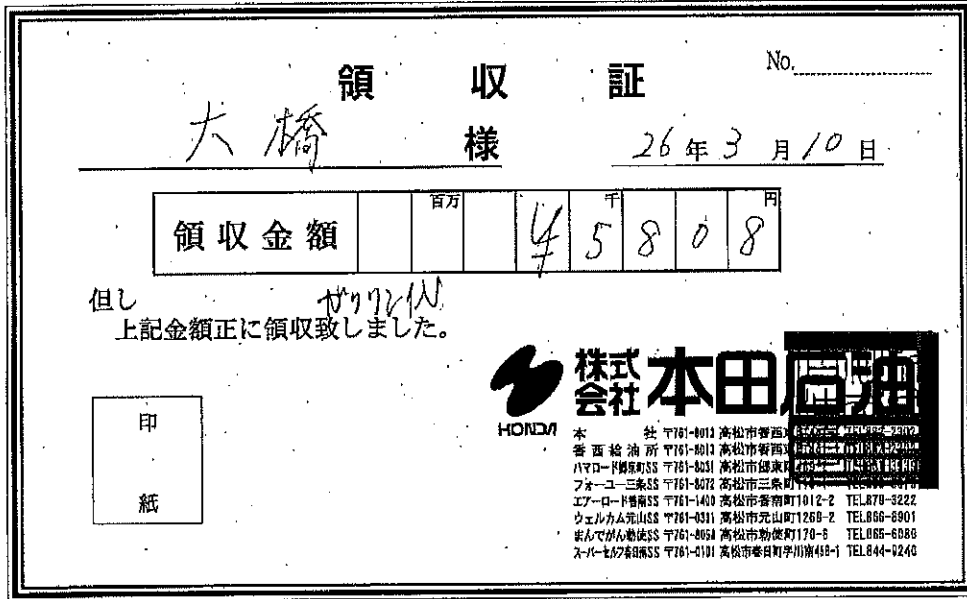 No.
領収証
大橋 様 26年3月10日
領収金額 百万 千 円
¥5808
但し ガソリン代
上記金額正に領収致しました。
印紙
HONDA
株式会社 本田石油
本社 〒761-8013 高松市香西
香西給油所 〒761-8013 高松市香西
ハマロード郷東町SS 〒761-8031 高松市郷東
フォーユー三条SS 〒761-8072 高松市三条
エアーロード香南SS 〒761-1400 高松市香南町1012-2 TEL879-3222
ウェルカム元山SS 〒761-0311 高松市元山町1268-2 TEL866-8901
まんでがん勅使SS 〒761-8058 高松市勅使町170-6 TEL865-6080
スーパーセルフ春日南SS 〒761-0101 高松市春日町字川南498-1 TEL844-9240